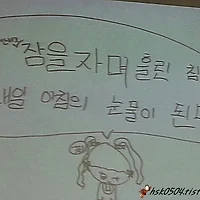 잠을자며 흘린 침
내일 아침의 눈물이 된다
hsk0504.tist